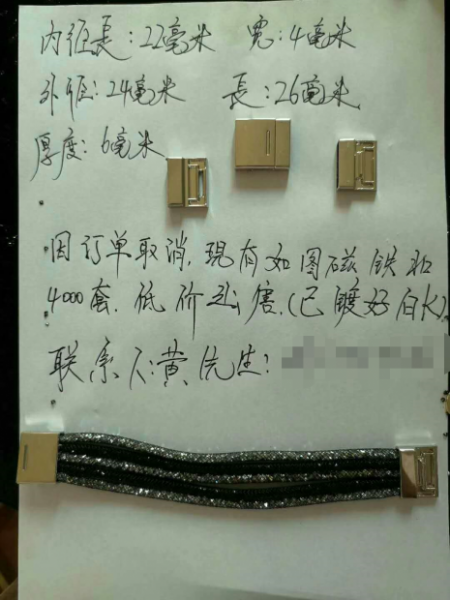 内径長:22毫米 宽:4毫米
外径:24毫米 長:26毫米
厚度:6毫米
因订单取消.现有如图磁铁扣
4000套.低价出售.(已镀好白K)
联系人:黄先生: